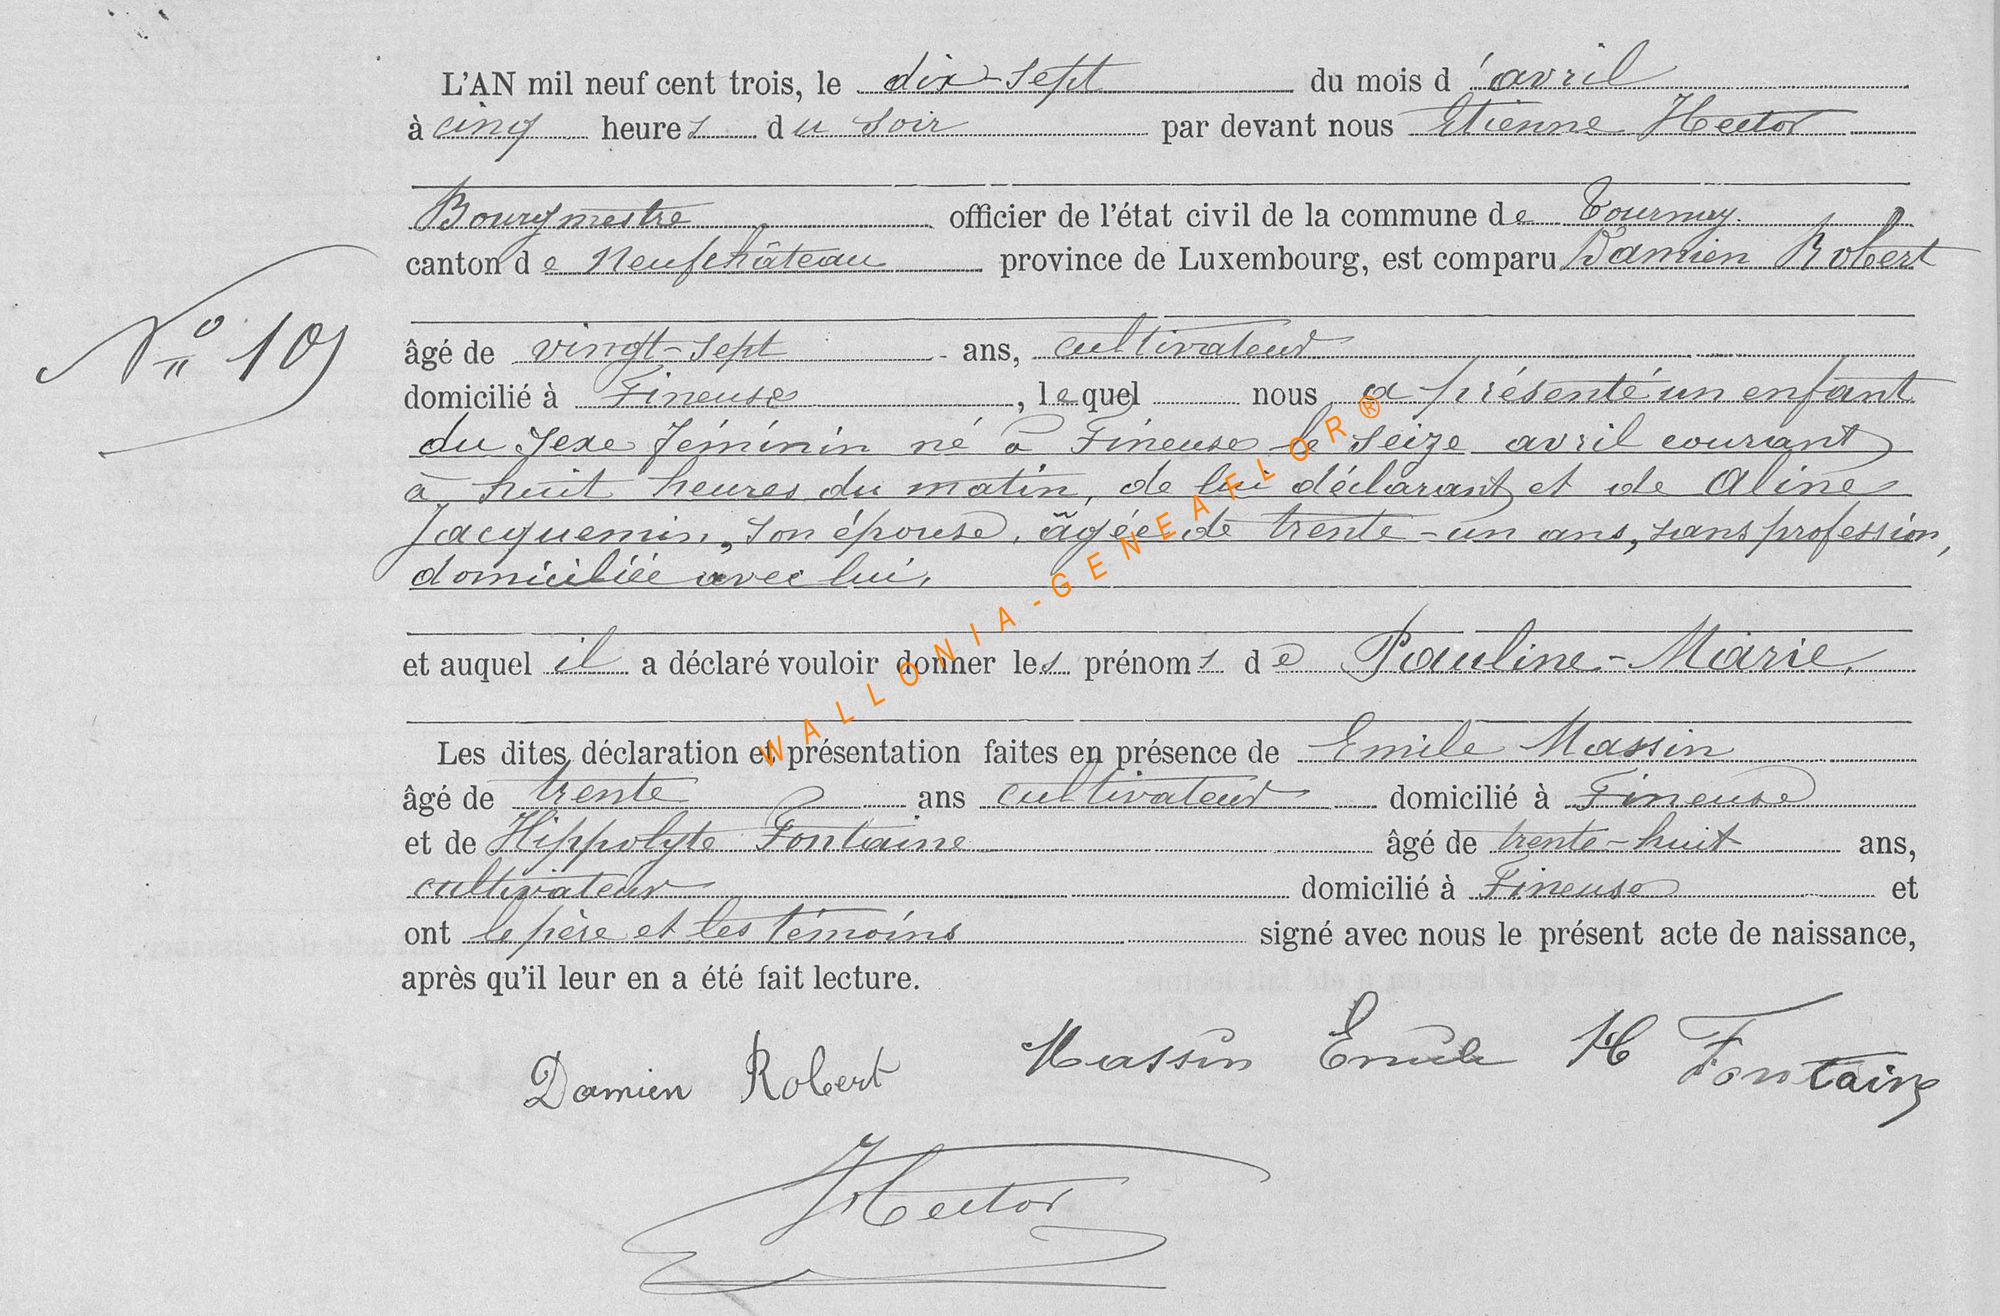 L'AN mil neuf cent trois, le dix-sept du mois d'avril
à cinq heures du soir par devant nous Etienne Hector
Bourgmestre officier de l'état civil de la commune de Tournay.
canton de Neufchâteau province de Luxembourg, est comparu Damien Robert
N° 10
âgé de vingt-sept ans, cultivateur
domicilié à Fineuse, lequel nous a présenté un enfant
du sexe féminin né à Fineuse le seize avril courant
à huit heures du matin, de lui déclarant et de Aline
Jacquemin, son épouse, âgée de trente-un ans, sans profession,
domiciliée avec lui,
et auquel il a déclaré vouloir donner les prénoms de Pauline-Marie,
Les dites déclaration et présentation faites en présence de Emile Massin
âgé de trente ans cultivateur domicilié à Fineuse
et de Hippolyte Fontaine âgé de trente-huit ans,
cultivateur domicilié à Fineuse et
ont le père et les témoins signé avec nous le présent acte de naissance,
après qu'il leur en a été fait lecture.
Damien Robert Massin Emile H Fontaine
Hector
WALLONIA-GENEAFLOR®